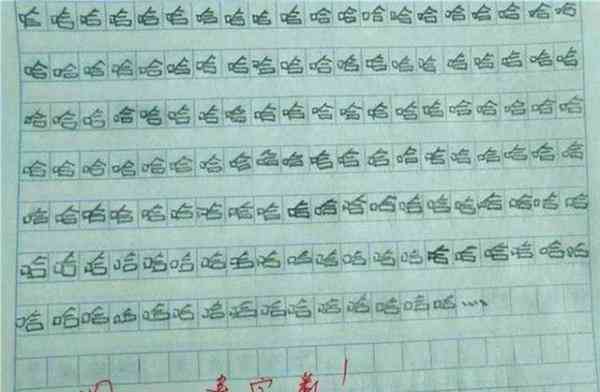 哈哈哈哈哈哈哈哈哈哈哈哈哈哈哈哈哈哈哈哈
哈哈哈哈哈哈哈哈哈哈哈哈哈哈哈哈哈哈哈哈
哈哈哈哈哈哈哈哈哈哈哈哈哈哈哈哈哈哈哈哈
哈哈哈哈哈哈哈哈哈哈哈哈哈哈哈哈哈哈哈哈
哈哈哈哈哈哈哈哈哈哈哈哈哈哈哈哈哈哈哈哈
哈哈哈哈哈哈哈哈哈哈哈哈哈哈哈哈哈哈哈哈
哈哈哈哈哈哈哈哈哈哈哈哈哈哈哈……